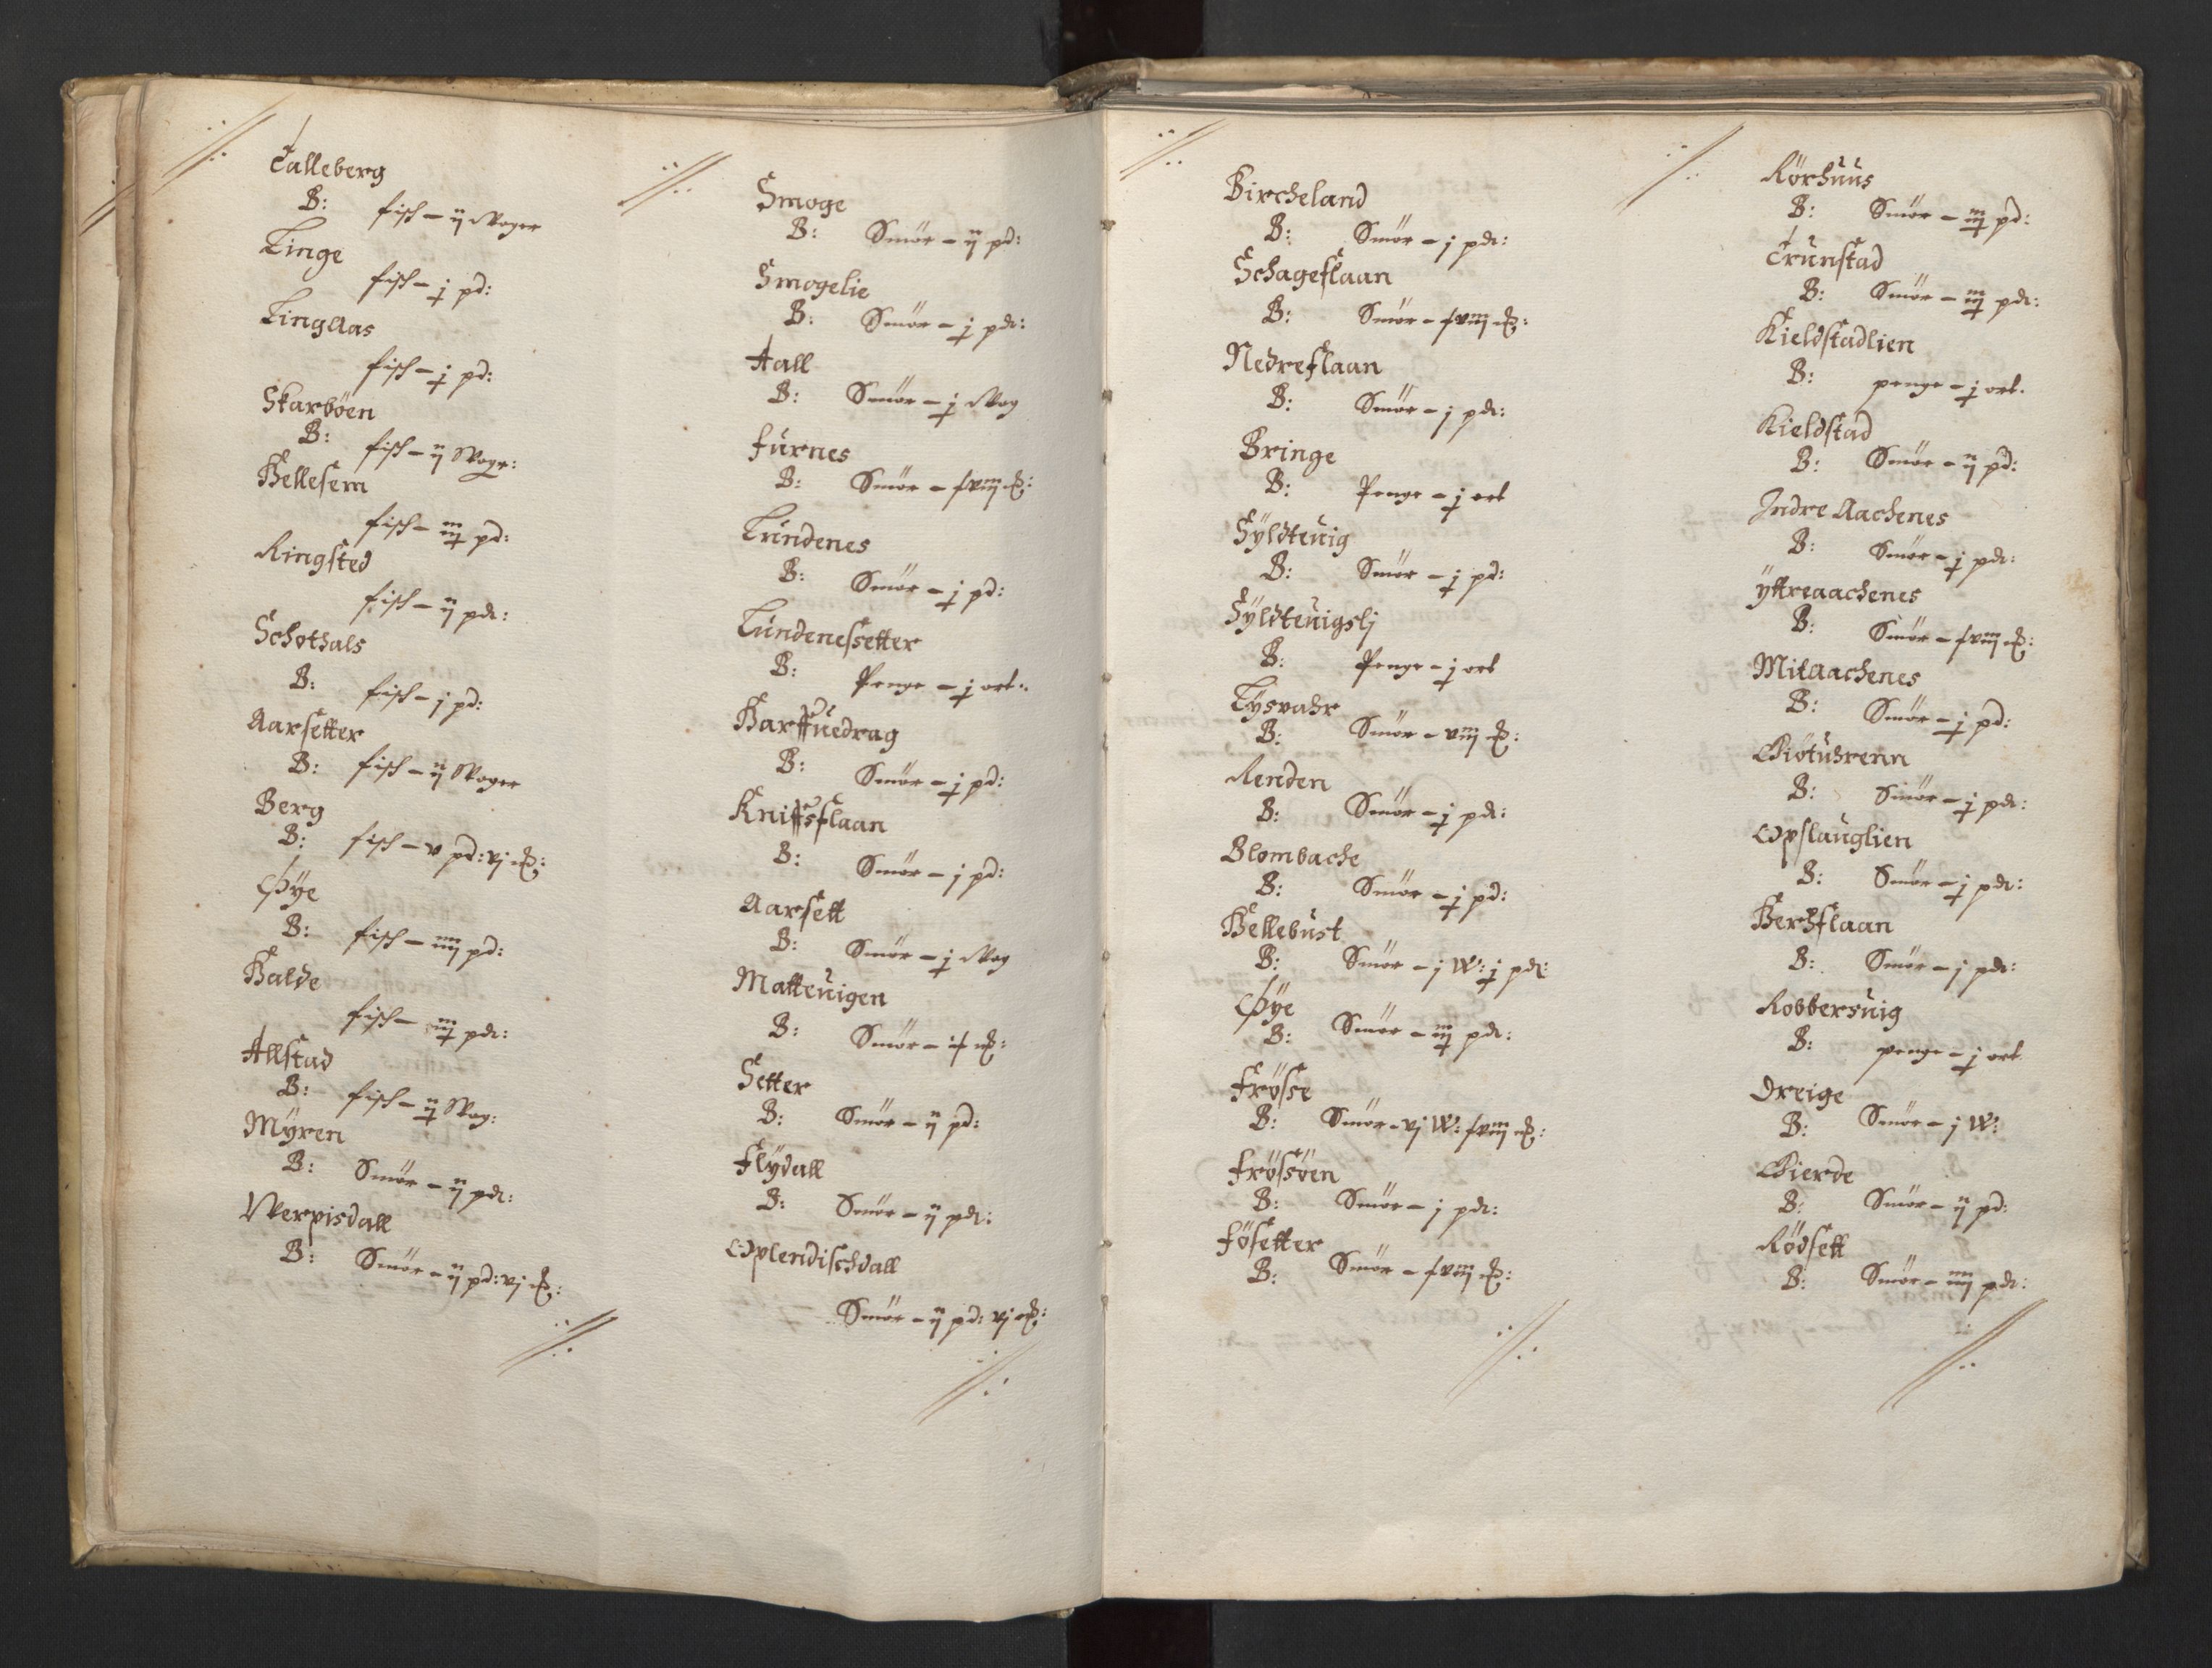 Talleberg
B: fisch – ij Woger
Linge
fisch – j pd:
Lingaas
fisch – j pd:
Skarböen
B: fisch – ij Woge:
Hellesem
fisch – iij pd:
Ringsted
fisch – ij pd:
Schothals
B: fisch – j pd:
Aarsetter
B: fisch – ij Woger
Berg
B: fisch – v pd: vj
Øye
B: fisch – iiij pd:
Halde
fisch – iiij pd:
Allstad
B: fisch – ij Wog:
Mÿren
B: Smör – ij pd:
Werpisdall
B: Smör – ij pd: vj
Smoge
B: Smör – ij pd:
Smogelie
B: Smör – j pd:
Aall
B: Smör – j Wog
Furnes
B: Smör – fviij
Lundenes
B: Smör – j pd:
Lundenessetter
B: Penge – j ort:
Harffuedrag
B: Smör – j pd:
Kniffsflaan
B: Smör – j pd:
Aarsett
B: Smör – j Wog
Matteuigen
B: Smör –
Setter
B: Smör – ij pd:
Flÿdall
B: Smör – ij pd:
Oplendischdall
Smör – ij pd: vj
Bircheland
B: Smör – j pd:
Schageflaan
B: Smör – fviij
Nedreflaan
B: Smör – j pd:
Bringe
B: Penge – j ort
Sÿldteuig
B: Smör – j pd:
Sÿldteuigslj
B: Penge – j ort
Lÿsvahr
B: Smör – viij
Renden
B: Smör – j pd:
Blombache
B: Smör – j pd:
Hellebust
B: Smör – j W: j pd:
Øye
B: Smör – iij pd:
Frösse
B: Smör – vj W: fviij
Frössöen
B: Smör – j pd:
Fösetter
B: Smör – fviij
Rörhuus
B: Smör – iij pd:
Trunstad
B: Smör – iij pd:
Kieldstadlien
B: penge – j ort.
Kieldstad
B: Smör – ij pd:
Indre Aachenes
B: Smör – j pd:
ÿttreaachenes
B: Smör – fviij
Mitaachenes
B: Smör – j pd:
Giötuhrenn
B: Smör – j pd:
Opslauglien
B: Smör – j pd:
Herdflaan
B: Smör – j pd:
Robbersuig
B: penge – j ort
Dreige
B: Smör – j W:
Gierde
B: Smör – ij pd:
Rödsett
B: Smör – iiij pd: